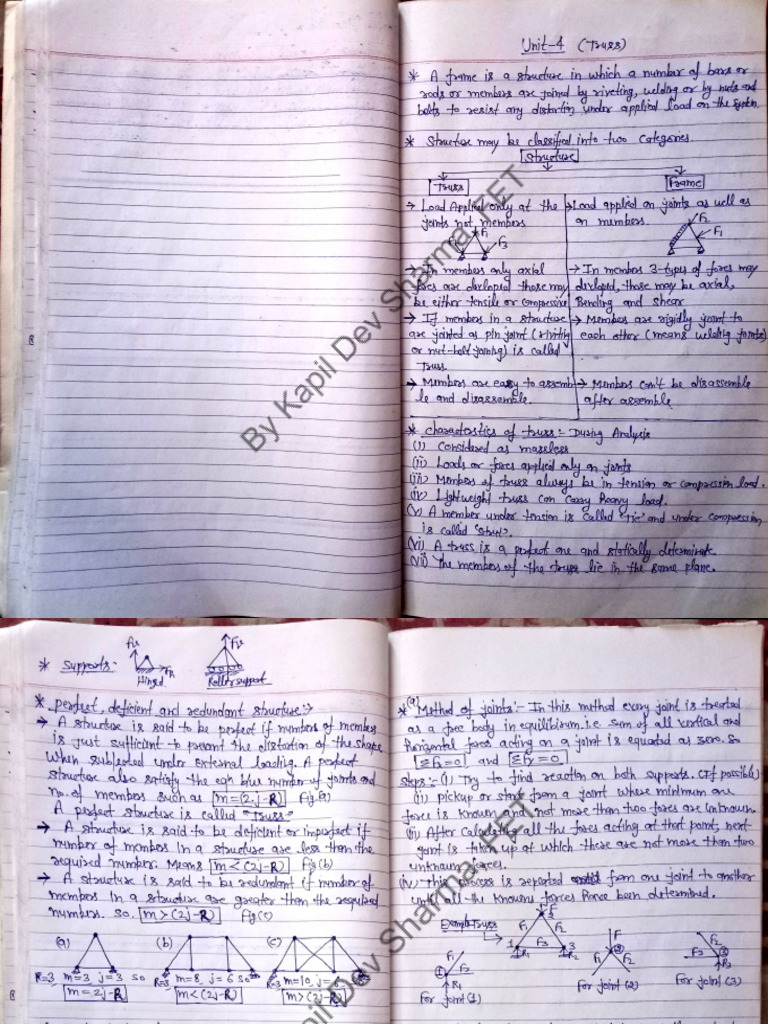 Unit-4 (Truss)
* A frame is a structure in which a number of bars or
rods or members are joined by riveting, welding or by nuts and
bolts to resist any distortion under applied load on the system.
* Structure may be classified into two categories.
Structure
Truss
Frame
→ Load Applied only at the
joints not members
F1
F2
F3
→ Load applied on joints as well as
on members.
F2
F1
→ In members only axial
forces are devloped those may
be either tensile or compressive
→ In members 3-types of forces may
devloped, those may be axial,
Bending and shear
→ If members in a structure
are jointed as pin joint (riviting
or nut-bolt joining) is called
Truss
→ Members are rigidly joint to
each other (means welding joints)
→ Members are easy to assemb
le and disassemble.
→ Members can't be disassemble
after assemble
* Charactorstics of truss:- During Analysis
(i) Considered as massless
(ii) Loads or forces applied only on joints
(iii) Members of truss always be in tension or compression load.
(iv) Lightweight truss can carry heavy load.
(v) A member under tension is called 'Tie' and under compression
is called 'strut'.
(vi) A truss is a perfect one and statically determinate.
(vii) The members of the truss lie in the same plane.
By Kapil Dev Sharma, FET
* Supports:-
Fv
FH
Hinged
Fv
Roller support
* perfect, deficient and redundant structure:→
→ A structure is said to be perfect if numbers of members
is just sufficient to prevent the distortion of the shape
when subjected under external loading. A perfect
structure also satisfy the eqn b/w number of joints and
no. of members such as m=(2j-R) Fig(a)
A perfect structure is called "Truss"
→ A structure is said to be deficient or imperfect if
number of members in a structure are less than the
required number. Means m<(2j-R) Fig(b)
→ A structure is said to be redundant if number of
members in a structure are greater than the required
numbers. so. m>(2j-R) Fig(c)
(a)
(b)
(c)
R=3 m=3 j=3 so
m=2j-R
R=3 m=8 j=6 so
m<(2j-R)
R=3 m=10, j=6
m>(2j-R)
* (a) Method of joints:- In this method every joint is treated
as a free body in equilibrium. i.e sum of all vertical and
horizontal forces acting on a joint is equated as zero. so
ΣFx=0 and ΣFy=0
steps:- (i) Try to find reaction on both supports. (If possible)
(ii) pickup or start from a joint where minimum one
force is known and not more than two forces are unknown
(iii) After calculating all the forces acting at that point, next
joint is taken up at which there are not more than two
unknown forces.
(iv) This process is repeated from one joint to another
until all the knowns forces have been determined.
Example Truss
F
2
F1
F2
1
F3
3
R1
R2
F1
1
F3
R1
For joint (1)
F
2
F1
F2
For joint (2)
F2
F3
3
R2
For joint (3)
Kapil Dev Sharma, FET